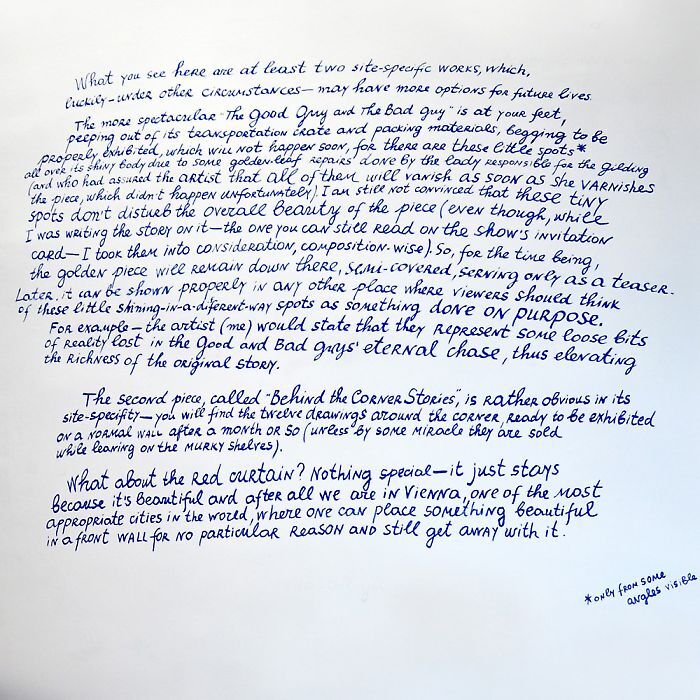 What you see here are at least two site-specific works, which,
luckily – under other circumstances – may have more options for future lives.
The more spectacular "The Good Guy and The Bad guy" is at your feet,
peeping out of its transportation crate and packing materials, begging to be
properly exhibited, which will not happen soon, for there are these little spots*
all over its shiny body due to some golden-leaf 'repairs' done by the lady responsible for the gilding
(and who had assured the artist that all of them will vanish as soon as she varnishes
the piece, which didn't happen unfortunately). I am still not convinced that these tiny
spots don't disturb the overall beauty of the piece (even though, while
I was writing the story on it – the one you can still read on the show's invitation
card – I took them into consideration, composition-wise). So, for the time being,
the golden piece will remain down there, semi-covered, serving only as a teaser.
Later, it can be shown properly in any other place where viewers should think
of these little shining-in-a-diferent-way spots as something done on purpose.
For example – the artist (me) would state that they represent some loose bits
of reality lost in the Good and Bad guys' eternal chase, thus elevating
the richness of the original story.
The second piece, called "Behind the Corner Stories", is rather obvious in its
site-specifity – you will find the twelve drawings around the corner, ready to be exhibited
on a normal wall after a month or so (unless by some miracle they are sold
while leaning on the murky shelves).
What about the red curtain? Nothing special – it just stays
because it's beautiful and after all we are in Vienna, one of the most
appropriate cities in the world, where one can place something beautiful
in a front wall for no particular reason and still get away with it.
*only from some
angles visible